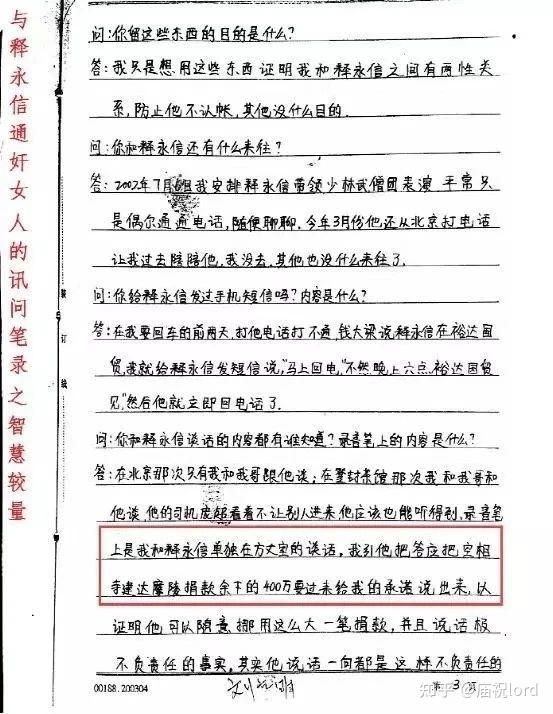 与释永信通奸女人的讯问笔录之智慧较量
问:你留这些东西的目的是什么?
答:我只是想用这些东西证明我和释永信之间有两性关
系,防止他不认帐,其他没什么目的.
问:你和释永信还有什么来往?
答:2002年7月 我安排释永信带领少林武僧团表演 平常只
是偶尔通通电话,随便聊聊.今年3月份他还从北京打电话
让我过去陪陪他,我没去.其他也没什么来往了.
问:你给释永信发过手机短信吗?内容是什么?
装 订 线
答:在我要回车的前两天,打他电话打不通,钱大梁说释永信在裕达国
贸,我就给释永信发短信说,"马上回电,"不然晚上六点,裕达国贸
见,"然后他就立即回电话了.
问:你和释永信谈话的内容都有谁知道?录音笔上的内容是什么?
答:在北京那次只有我和我哥跟他谈;在登封宾馆那次我和我哥和
他谈,他的司机 看着不让别人进来他应该也能听得到,录音笔
上是我和释永信单独在方丈室的谈话,我引他把答应把空相
寺建达摩陵捐款余下的400万要过来给我的承诺说出来,以
证明他可以随意挪用这么大一笔捐款,并且说话极
不负责任的事实,其实他说话一向都是这样不负责任的
00188.200304
第 3 页
知乎 @庙祝lord